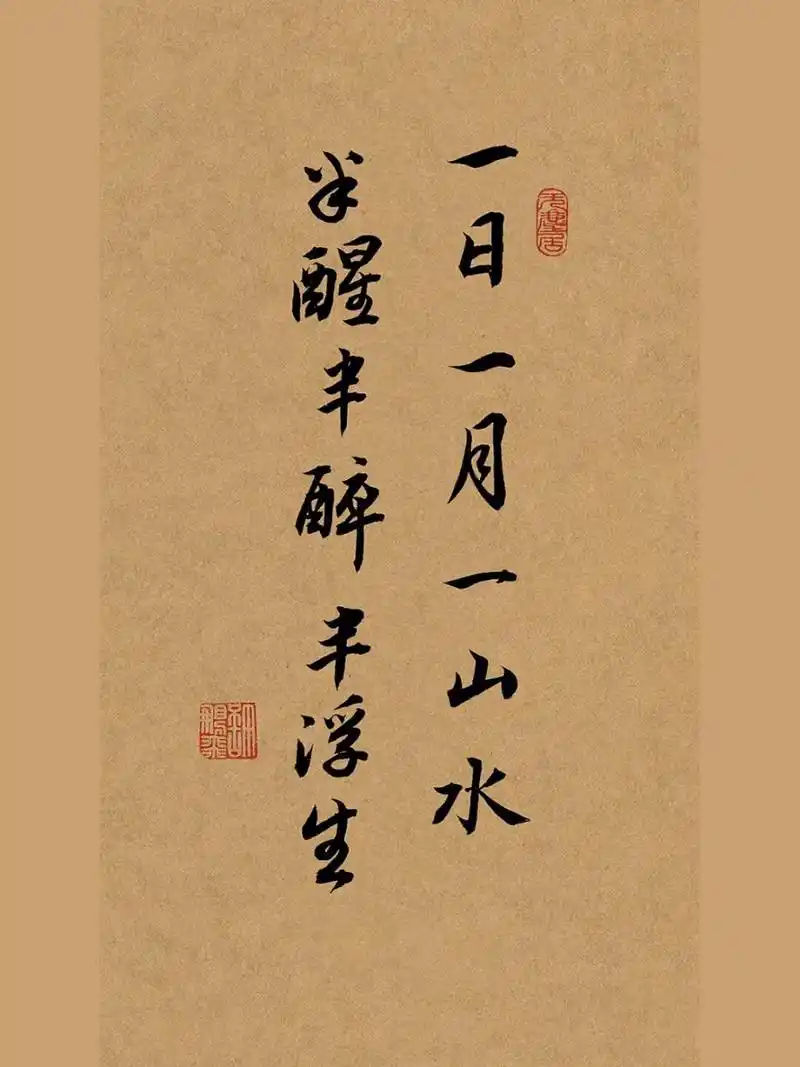 一日一月一山水
半醒半醉半浮生